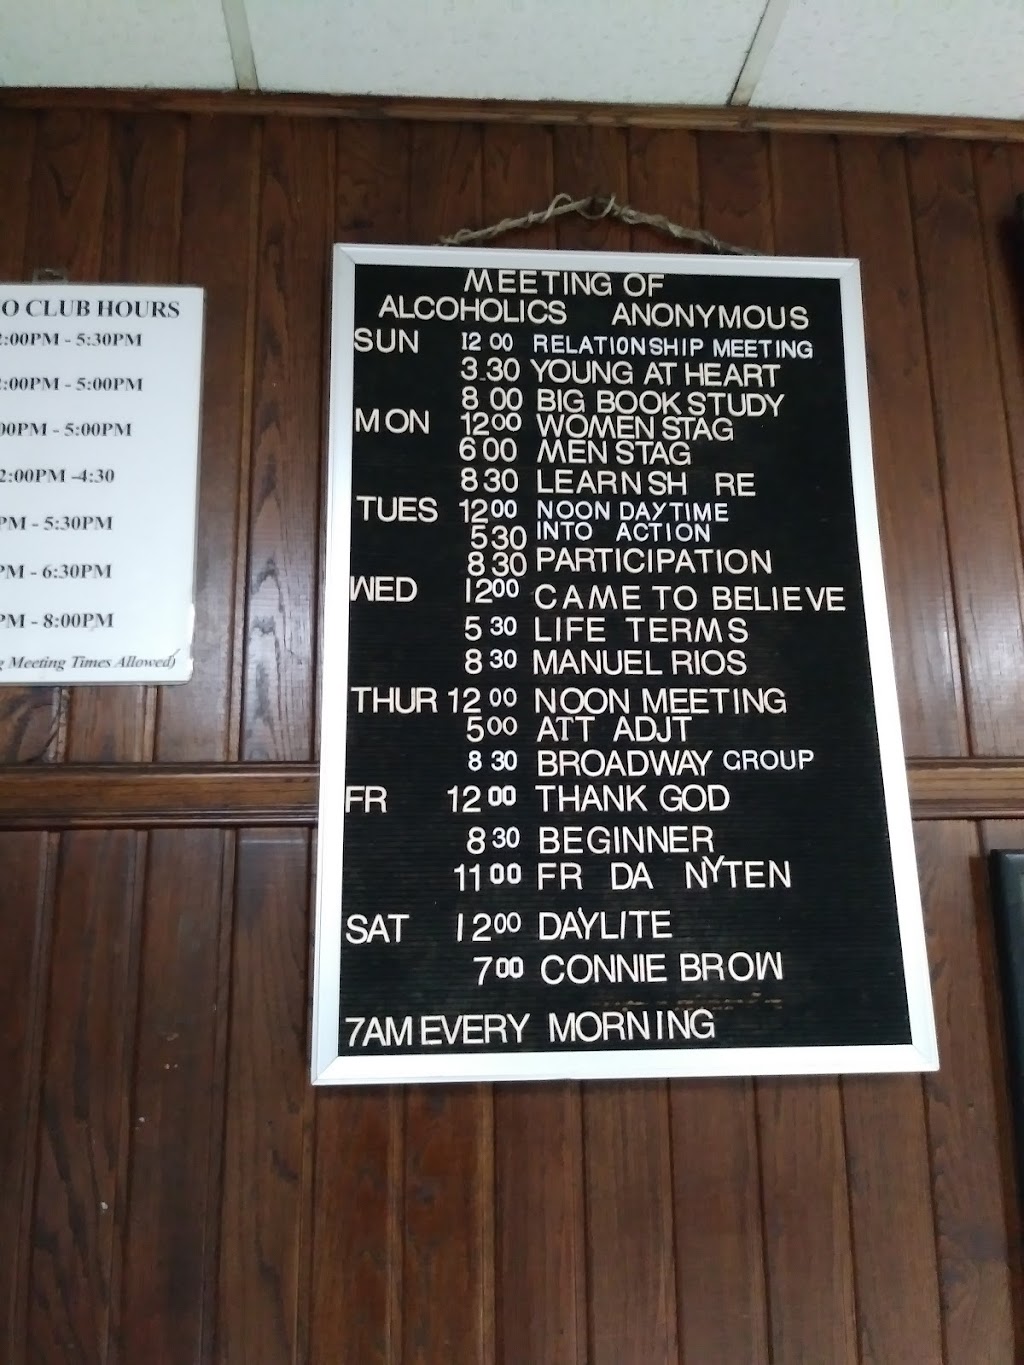 O CLUB HOURS
:00PM - 5:30PM
:00PM - 5:00PM
00PM - 5:00PM
2:00PM -4:30
PM - 5:30PM
PM - 6:30PM
PM - 8:00PM
g Meeting Times Allowed)
MEETING OF
ALCOHOLICS ANONYMOUS
SUN 12 00 RELATIONSHIP MEETING
3.30 YOUNG AT HEART
8 00 BIG BOOK STUDY
MON 12 00 WOMEN STAG
6 00 MEN STAG
8 30 LEARN SH RE
TUES 12 00 NOON DAYTIME
5 30 INTO ACTION
8 30 PARTICIPATION
WED 12 00 CAME TO BELIEVE
5 30 LIFE TERMS
8 30 MANUEL RIOS
THUR 12 00 NOON MEETING
5 00 ATT ADJT
8 30 BROADWAY GROUP
FR 12 00 THANK GOD
8 30 BEGINNER
11 00 FR DA NYTEN
SAT 12 00 DAYLITE
7 00 CONNIE BROW
7AM EVERY MORNING